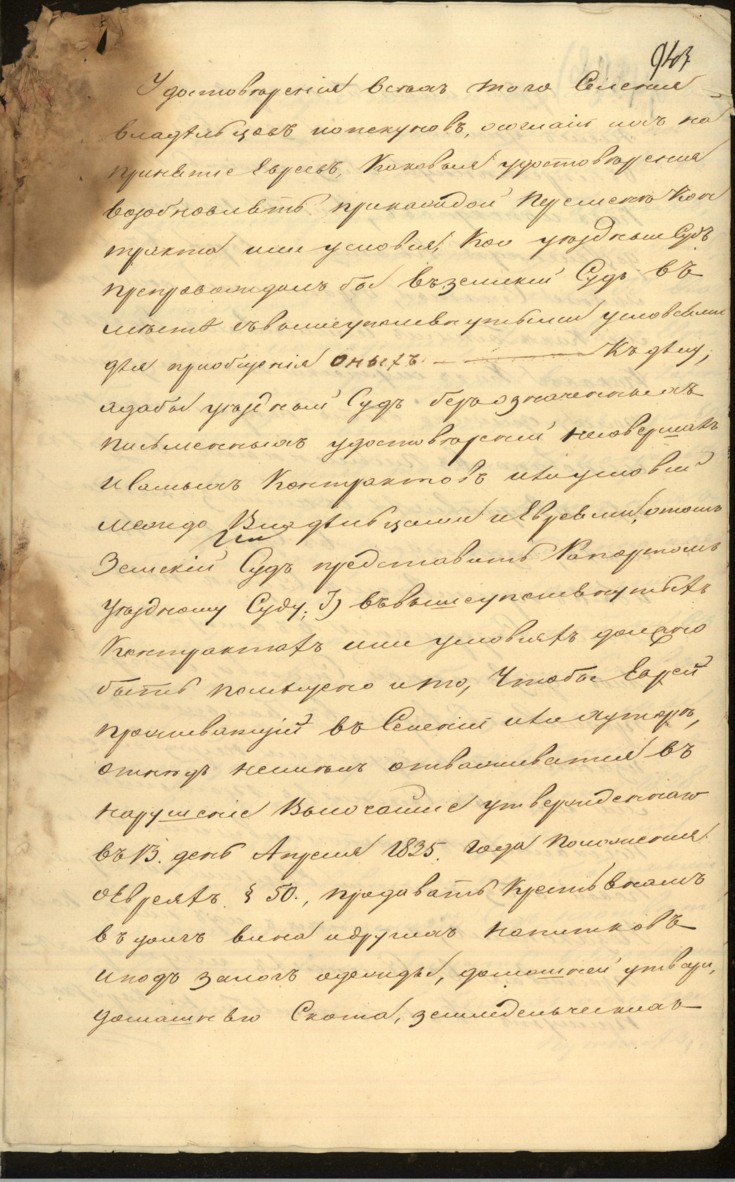 943
Удостоверенія всѣхъ того Селенія
владѣльцевъ и опекуновъ, о согласіи ихъ на
принятіе Евреевъ, Каковыя удостоверенія
возобновлять при каждой перемене Кон
тракта или условія, Кои уѣздный Судъ
препровождалъ бы въ земскій Судъ в
мѣстѣ съ вышеупомянутыми условіями
для пріобщенія оныхъ — Къ делу,
а дабы уѣздный Судъ безъ означенныхъ
письменныхъ удостовѣреній не совершалъ
и самыхъ Контрактовъ или условій
между Владѣльцами и Евреями, о томъ
Земскій Судъ представить Рапортомъ
Уѣздному Суду; 3) въ вышеупомянутыхъ
Контрактахъ или условіяхъ должно
быть помѣщено и то, Чтобы Еврей
проживающій въ Селеніи или хуторѣ,
отнюдь не отваживался въ
нарушеніе Высочайше утвержденнаго
въ 13. день Апреля 1835. года Положенія
о Евреяхъ § 50., продавать Крестьянамъ
въ долгъ вина и другихъ напитковъ
и подъ залогъ одежды, домашней утвари,
домашняго Скота, земледельческихъ